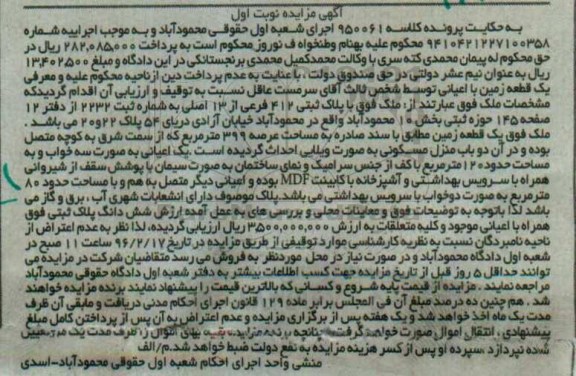 آگهی مزایده نوبت اول
به حکایت پرونده کلاسه ۹۵۰۰۶۱ اجرای شعبه اول حقوقی محمودآباد و به موجب اجراییه شماره
۹۴۱۰۴۲۱۲۲۷۱۰۰۳۵۸ محکوم علیه بهنام وطنخواه ف نوروز محکوم است به پرداخت ۲۸۲,۰۸۵,۰۰۰ ریال در
حق محکوم له پیمان محمدی کته سری با وکالت محمدکمیل محمدی برنجستانکی در این دادگاه و مبلغ ۱۳,۴۰۲۵۰۰
ریال به عنوان نیم عشر دولتی در حق صندوق دولت ، با عنایت به عدم پرداخت دین ازناحیه محکوم علیه و معرفی
یک قطعه زمین با اعیانی توسط شخص ثالث آقای سرمست عاقل نسبت به توقیف و ارزیابی آن اقدام گردیدکه
مشخصات ملک فوق عبارتند از: ملک فوق با پلاک ثبتی ۴۱۲ فرعی از ۱۳ اصلی به شماره ثبت ۲۲۳۲ از دفتر ۱۲
صفحه ۱۴۵ حوزه ثبتی بخش ۱۰ محمودآباد واقع در محمودآباد خیابان آزادی دریای ۵۴ پلاک ۲۲و۲۰ می باشد .
ملک فوق یک قطعه زمین مطابق با سند صادره به مساحت عرصه ۳۹۹ مترمربع که از سمت شرق به کوچه متصل
بوده و در آن دو باب منزل مسکونی به صورت ویلایی احداث گردیده است .یک اعیانی به صورت سه خواب و به
مساحت حدود۱۲۰مترمربع با کف از جنس سرامیک و نمای ساختمان به صورت سیمان با پوشش سقف از شیروانی
همراه با سرویس بهداشتی و آشپزخانه با کابینت MDF بوده و اعیانی دیگر متصل به هم و با مساحت حدود ۸۰
مترمربع به صورت دوخواب با سرویس بهداشتی می باشد.پلاک موصوف دارای انشعابات شهری آب ، برق و گاز می
باشد لذا باتوجه به توضیحات فوق و معاینات محلی و بررسی های به عمل آمده ارزش شش دانگ پلاک ثبتی فوق
همراه با اعیانی موجود و کلیه متعلقات به ارزش ۳۵۰۰,۰۰۰,۰۰۰ ریال ارزیابی گردیده، لذا نظر به عدم اعتراض از
ناحیه نامبردگان نسبت به نظریه کارشناسی موارد توقیفی از طریق مزایده در تاریخ ۹۶/۲/۱۷ ساعت ۱۱ صبح در
شعبه اول دادگاه محمودآباد و در صورت نیاز در محل موردنظر به فروش می رسد متقاضیان شرکت در مزایده می
توانند حداقل ۵ روز قبل از تاریخ مزایده جهت کسب اطلاعات بیشتر به دفتر شعبه اول دادگاه حقوقی محمودآباد
مراجعه نمایند . مزایده از قیمت پایه شروع و کسانی که بالاترین قیمت را پیشنهاد نمایند برنده مزایده خواهند
شد . هم چنین ده درصد مبلغ آن فی المجلس برابر ماده ۱۲۹ قانون اجرای احکام مدنی دریافت و مابقی آن ظرف
مدت یک ماه اخذ خواهد شد و یک هفته پس از برگزاری مزایده و عدم اعتراض به آن پس از پرداختن کامل مبلغ
پیشنهادی ، انتقال اموال صورت خواهد گرفت چنانچه برنده مزایده بقیه بهای اموال را ظرف مدت یک ماه تعیین
شده نپردازد ،سپرده او پس از کسر هزینه مزایده به نفع دولت ضبط خواهد شد.م/الف
منشی واحد اجرای احکام شعبه اول حقوقی محمودآباد-اسدی